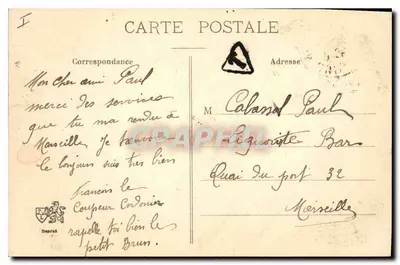 I
CARTE POSTALE
Correspondance
Adresse
T
Mon cher ami Paul
merci des services
que tu ma rendu à
Marseille Je
le bonjour suis très bien
Francois le
Coupeur Cordonier
rapelle toi bien le
petit Brun.
M Cabassol Paul
Bar
Quai du port 32
Marseille